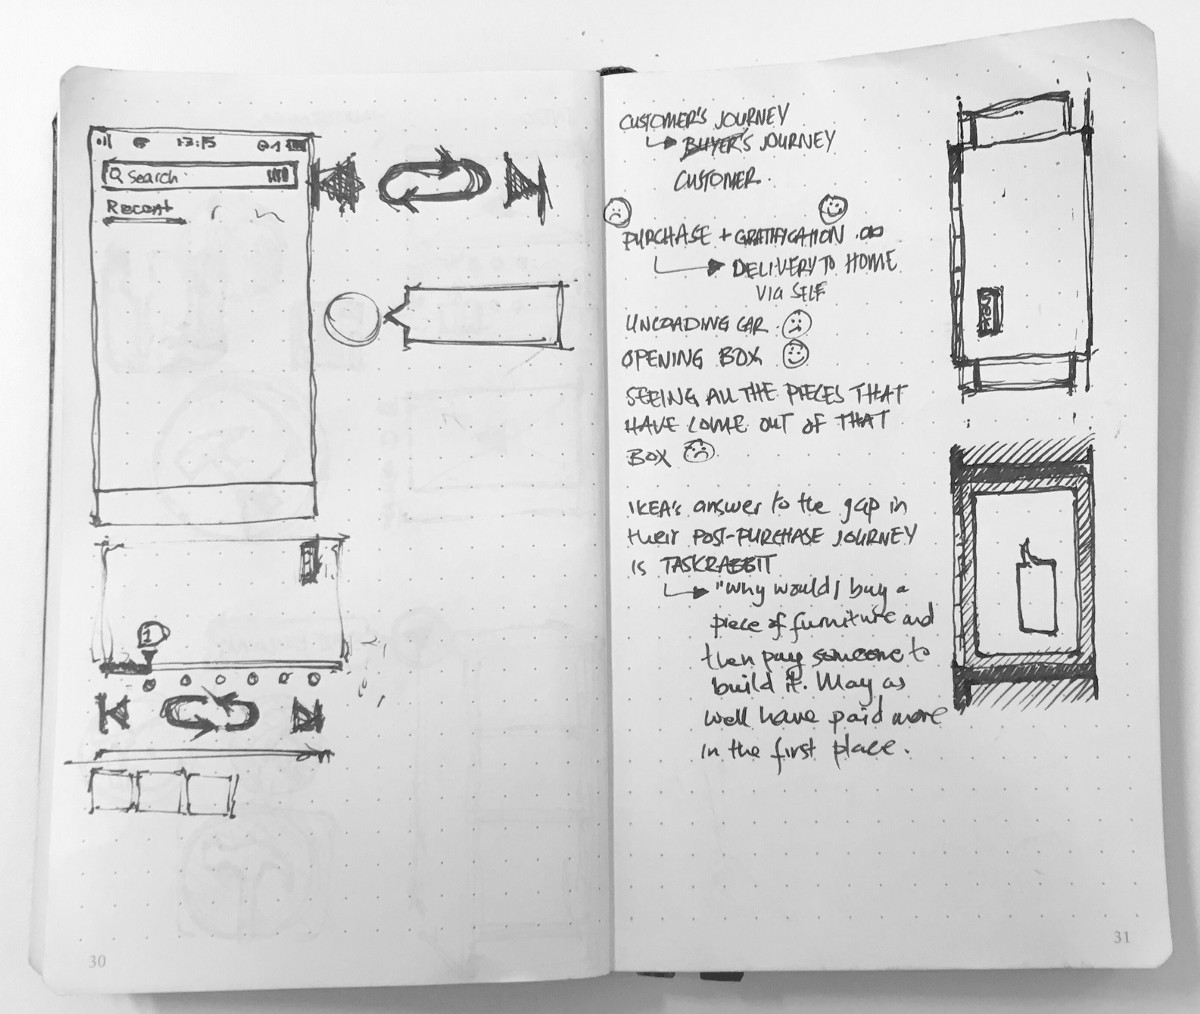 13:15
Search
Recent
1
30
CUSTOMER'S JOURNEY
BUYER'S JOURNEY
CUSTOMER
PURCHASE + GRATIFICATION
DELIVERY TO HOME
VIA SELF
UNLOADING CAR
OPENING BOX
SEEING ALL THE PIECES THAT
HAVE COME OUT OF THAT
BOX
IKEA's answer to the gap in
their POST-PURCHASE JOURNEY
is TASKRABBIT
"Why would I buy a
piece of furniture and
then pay someone to
build it. May as
well have paid more
in the first place.
31